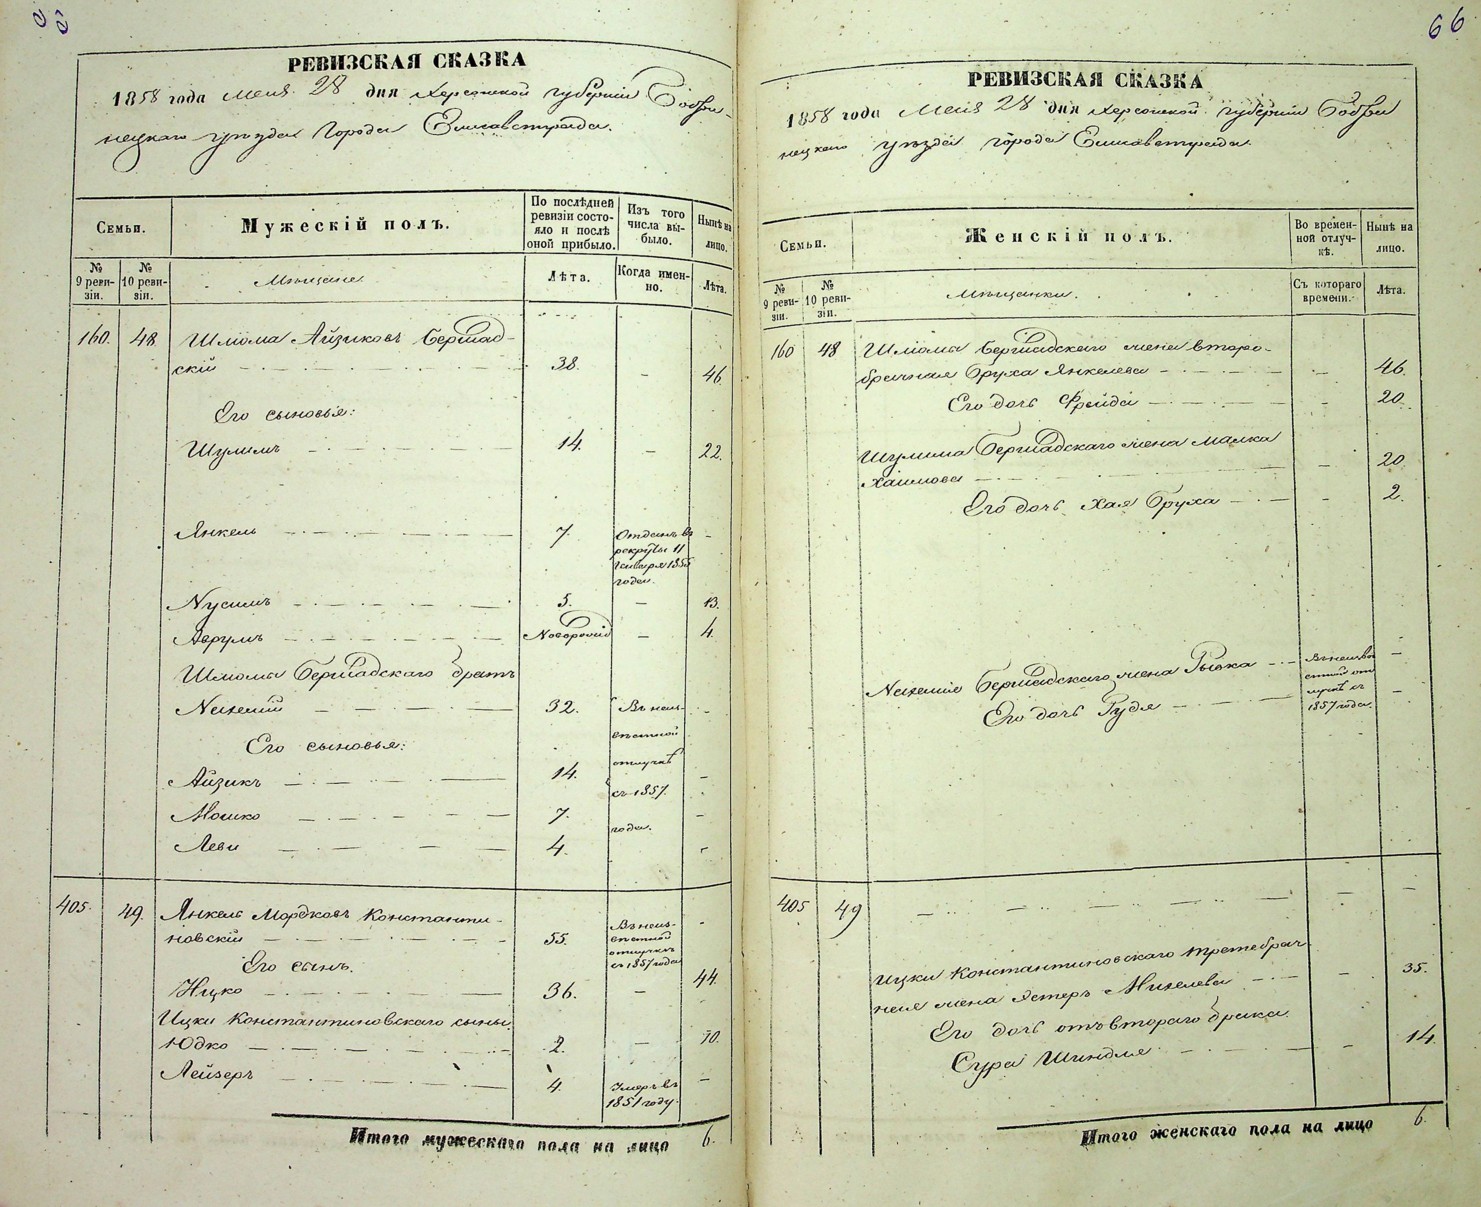 66
РЕВИЗСКАЯ СКАЗКА
1858 года Мая 28 дня Херсонской губерніи Бобри-
нецкаго уѣзда Города Елисаветграда.
Семьи.
Мужескій полъ.
По послѣдней ревизіи состо-
яло и послѣ
оной прибыло.
Изъ того
числа вы-
было.
Нынѣ на
лицо.
№
9 реви-
зіи.
№
10 реви-
зіи.
Мѣщане
Лѣта.
Когда имен-
но.
Лѣта.
160. 48. Шліома Айзиковъ Бершад-
скій 38. – 46.
Его сыновья:
Шулимъ 14. – 22.
Янкель 7. Отданъ въ
рекруты 11
Января 1855
года.
Нусимъ 5. – 13.
Аврумъ Новорожд – 4.
Шліомы Бершадскаго братъ
Нехемій 32. Въ неиз-
вѣстной
отлучкѣ
съ 1857.
года.
Его сыновья:
Айзикъ 14. –
Мошко 7. –
Леви 4. –
405. 49. Янкель Мордковъ Константи-
новскій 55. Въ неиз-
вѣстной
отлучкѣ
съ 1857 года –
Его сынъ.
Ицко 36. – 44.
Ицки Константиновскаго сыны
Юдко 2. – 10.
Лейзеръ 4. Умеръ въ
1851 году. –
Итого мужескаго пола на лицо 6.
РЕВИЗСКАЯ СКАЗКА
1858 года Мая 28 дня Херсонской губерніи Бобри
нецкаго уѣзда города Елисаветграда.
Семьи.
Женскій полъ.
Во времен-
ной отлуч-
кѣ.
Нынѣ на
лицо.
№
9 реви-
зіи.
№
10 реви-
зіи.
Мѣщанки.
Съ котораго
времени.
Лѣта.
160 48 Шліомы Бершадскаго жена второ-
брачная Бруха Янкелева – 46.
Его дочь Фрейда – 20.
Шулима Бершадскаго жена Малка
Хаимова – 20.
Его дочь Хая Бруха – 2.
Нехемія Бершадскаго жена Рывка Въ неизвѣ
стной от
лучкѣ съ
1857 года. –
Его дочь Рудя –
405 49 – – –
Ицки Константиновскаго третебрач
ная жена Эстеръ Михелева – 35.
Его дочь отъ втораго брака
Сура Шиндля – 14.
Итого женскаго пола на лицо 6.